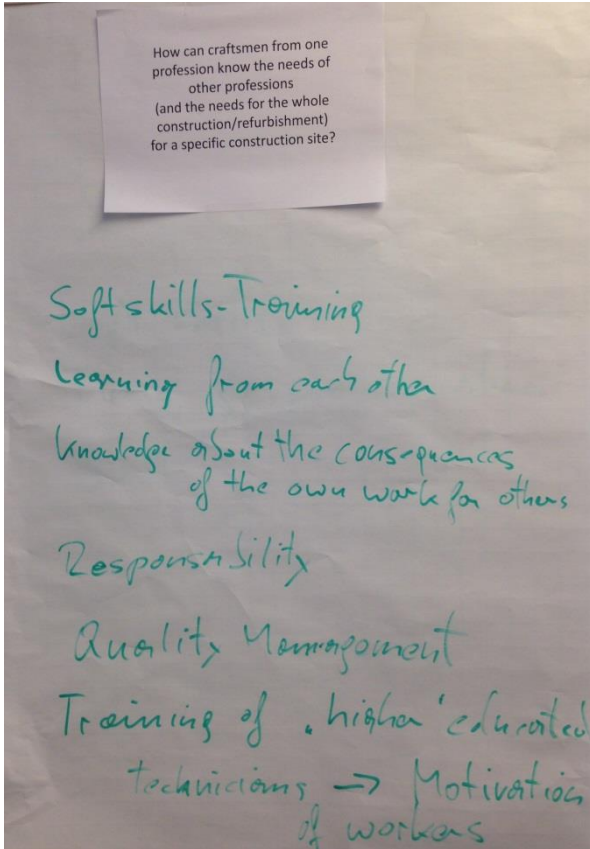 How can craftsmen from one
profession know the needs of
other professions
(and the needs for the whole
construction/refurbishment)
for a specific construction site?
Softskills-Training
Learning from each other
Knowledge about the consequences
of the own work for others
Responsability
Quality Management
Training of "higher" educated
technicians → Motivation
of workers